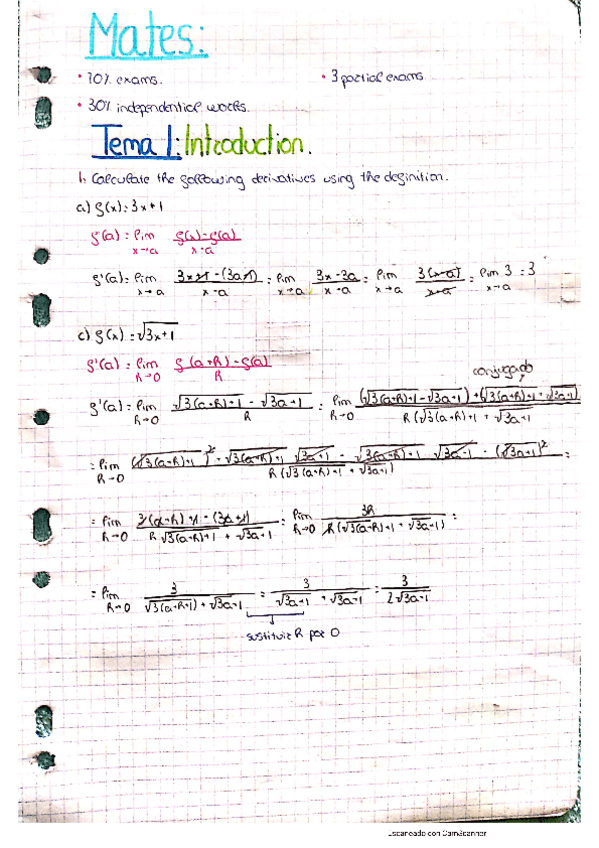 Mates:
• 70% exams. • 3 partial exams
• 30% independential works.
Tema 1: Introduction.
1. Calculate the following derivatives using the definition.
a) f(x) = 3x+1
f'(a) = lim x→a (f(x)-f(a))/(x-a)
f'(a) = lim x→a (3x+1-(3a+1))/(x-a) = lim x→a (3x-3a)/(x-a) = lim x→a (3(x-a))/(x-a) = lim x→a 3 = 3
c) f(x) = √(3x+1)
f'(a) = lim h→0 (f(a+h)-f(a))/h
conjugado
f'(a) = lim h→0 (√(3(a+h)+1) - √(3a+1))/h = lim h→0 ((√(3(a+h)+1) - √(3a+1)) · (√(3(a+h)+1) + √(3a+1)))/(h(√(3(a+h)+1) + √(3a+1)))
= lim h→0 ((√(3(a+h)+1))² + √(3(a+h)+1) √(3a+1) - √(3(a+h)+1) √(3a+1) - (√(3a+1))²)/(h(√(3(a+h)+1) + √(3a+1))) =
= lim h→0 (3(a+h)+1-(3a+1))/(h√(3(a+h)+1) + √(3a+1)) = lim h→0 3h/(h(√(3(a+h)+1) + √(3a+1))) =
= lim h→0 3/(√(3(a+h+1)) + √(3a+1)) = 3/(√(3a+1) + √(3a+1)) = 3/(2√(3a+1))
sustituir h por 0
Escaneado con CamScanner